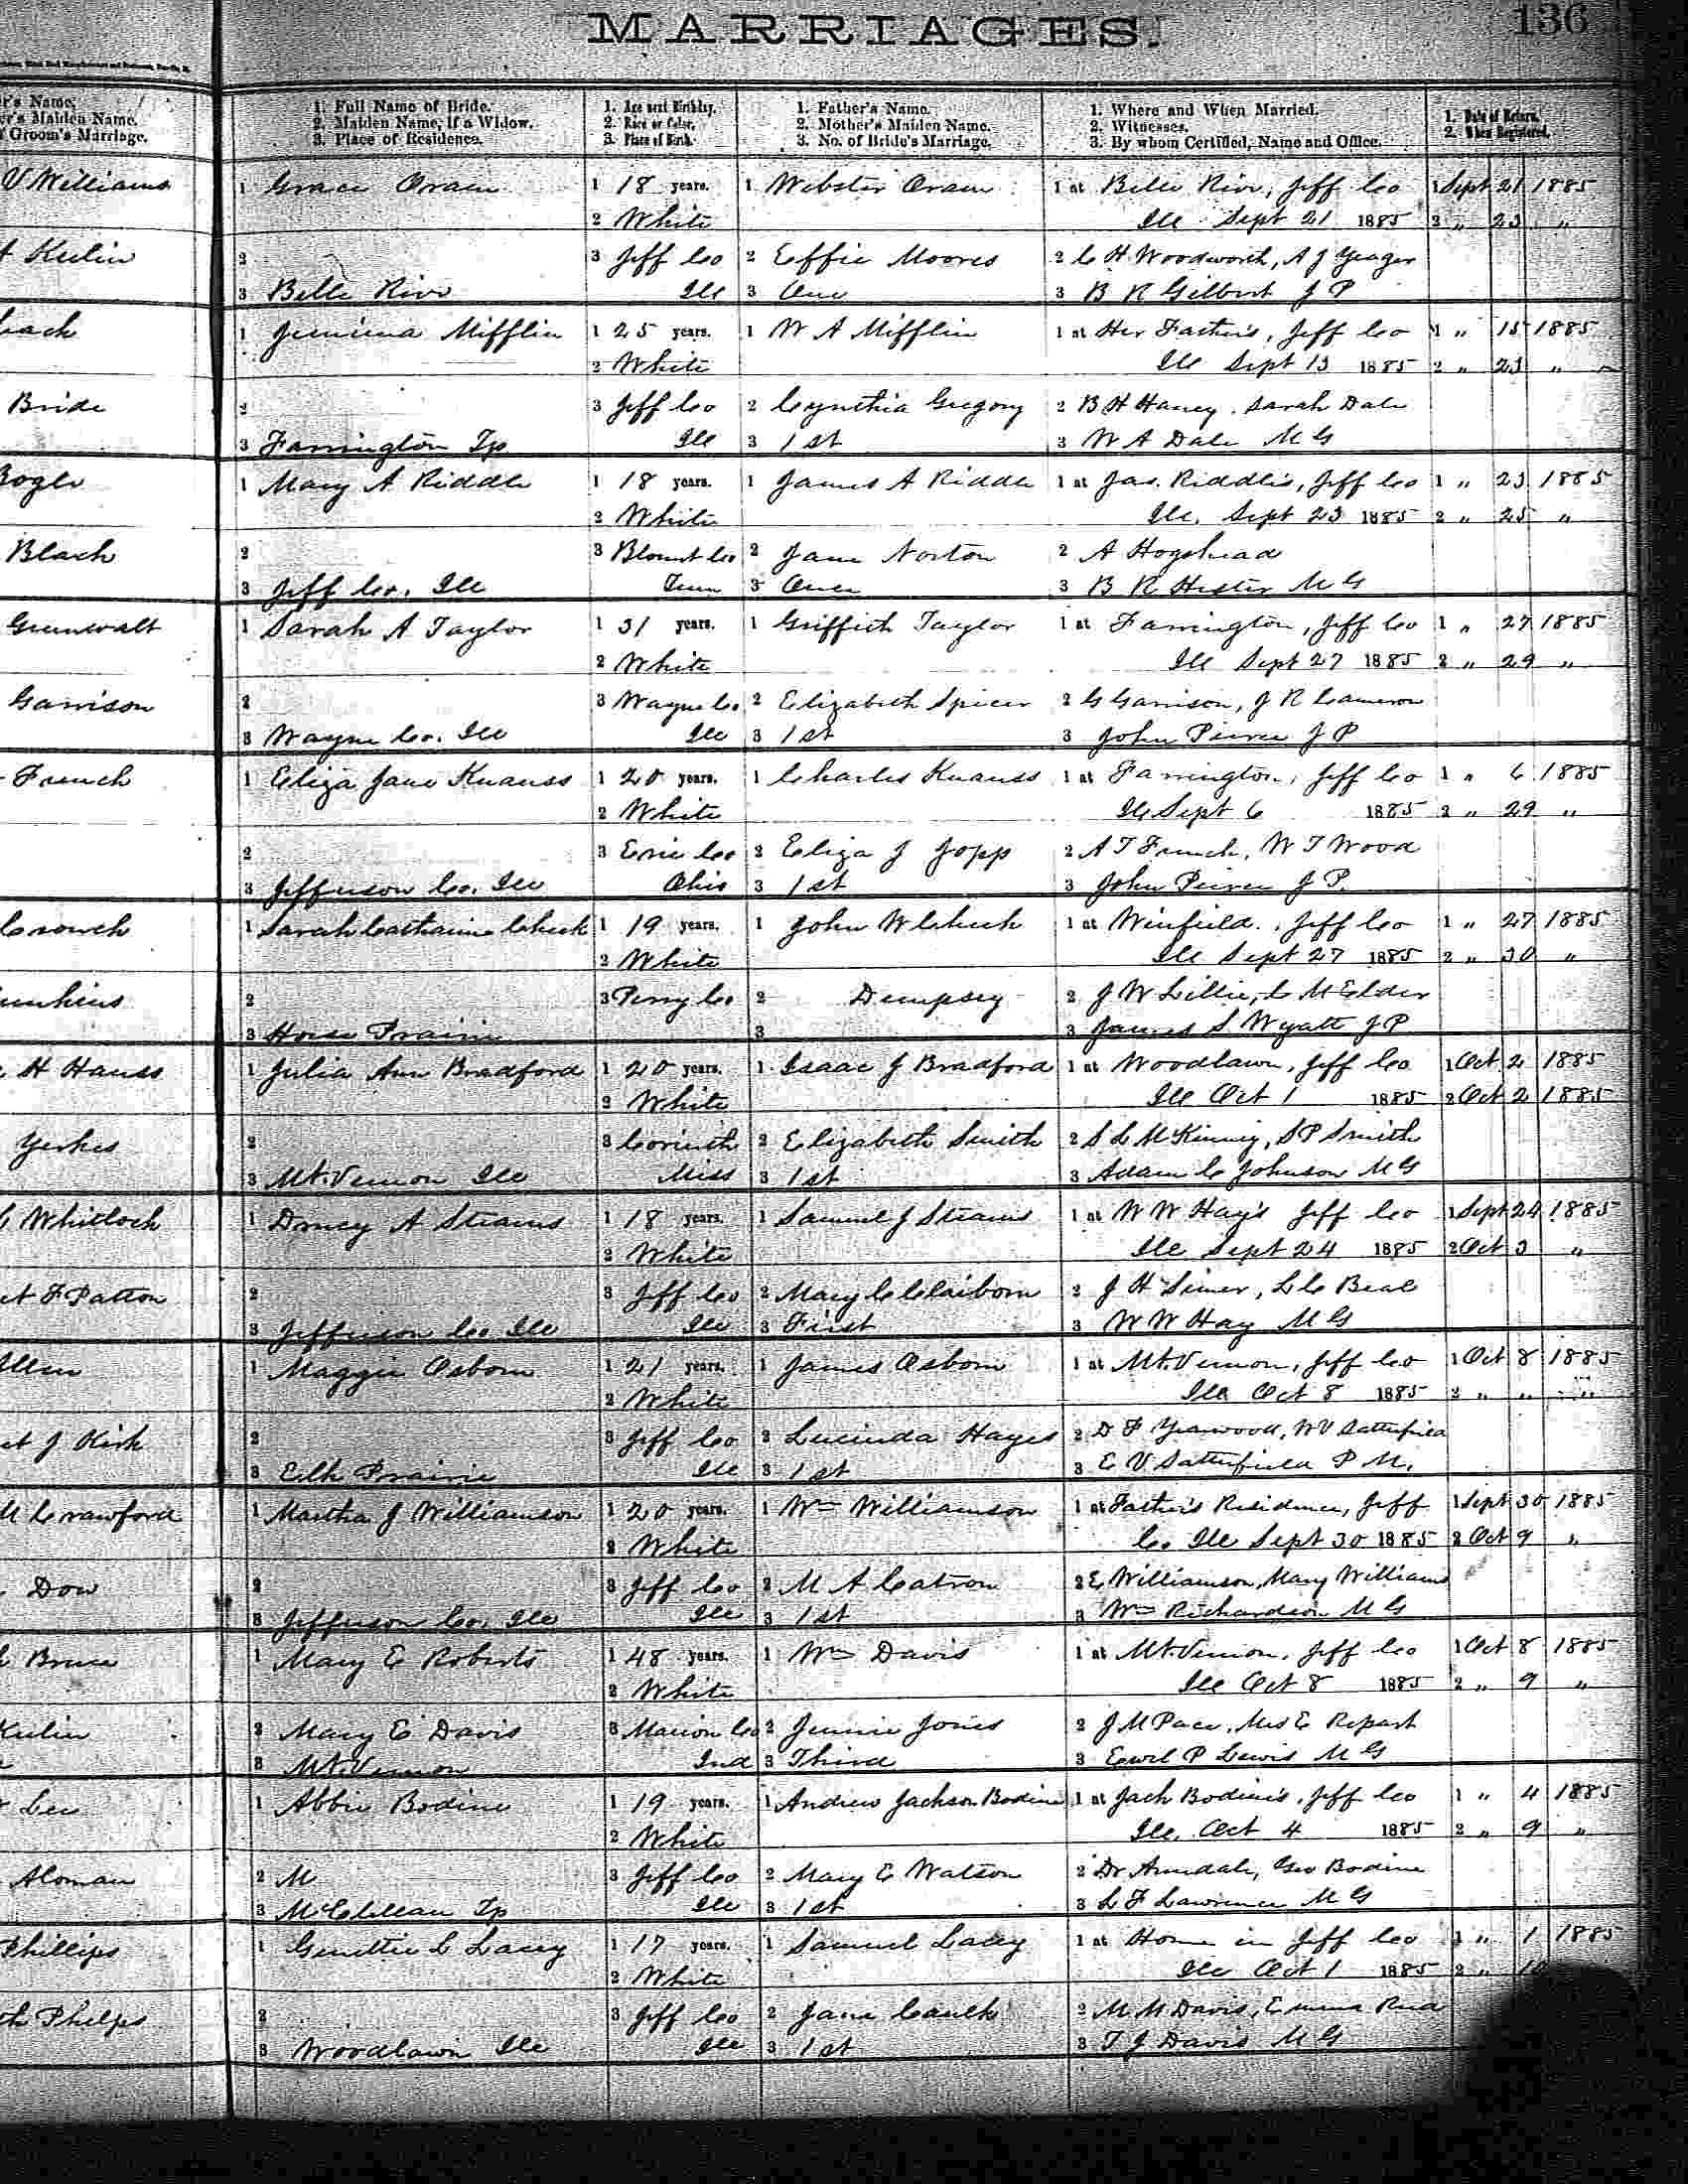 MARRIAGES.
136
r's Name.
er's Maiden Name.
f Groom's Marriage.
1. Full Name of Bride.
2. Maiden Name, if a Widow.
3. Place of Residence.
1. Age next Birthday.
2. Race or Color.
3. Place of Birth.
1. Father's Name.
2. Mother's Maiden Name.
3. No. of Bride's Marriage.
1. Where and When Married.
2. Witnesses.
3. By whom Certified, Name and Office.
1. Date of Return.
2. When Registered.
V Williams 1 Grace Oram 1 18 years. 1 Webster Oram 1 at Belle Rive, Jeff Co 1 Sept 21 1885
2 White Ill Sept 21 1885 2 " 23 "
Kulin 2 3 Jeff Co 2 Effie Moores 2 C H Woodworth, A J Yeager
3 Belle Rive Ill 3 One 3 B R Gilbert J P
1 Jemima Mifflin 1 25 years. 1 W A Mifflin 1 at Her Father's, Jeff Co 1 " 15 1885
2 White Ill Sept 13 1885 2 " 23 "
Bride 2 3 Jeff Co 2 Cynthia Gregory 2 B H Haney, Sarah Dale
3 Farrington Tp Ill 3 1st 3 W A Dale M G
Bogle 1 Mary A Riddle 1 18 years. 1 James A Riddle 1 at Jas. Riddle's, Jeff Co 1 " 23 1885
2 White Ill. Sept 23 1885 2 " 25 "
Black 2 3 Blount Co 2 Jane Norton 2 A Hogshead
3 Jeff Co. Ill Tenn 3 Once 3 B R Hester M G
Grunwalt 1 Sarah A Taylor 1 31 years. 1 Griffith Taylor 1 at Farrington, Jeff Co 1 " 27 1885
2 White Ill Sept 27 1885 2 " 29 "
Garrison 2 3 Wayne Co. 2 Elizabeth Spicer 2 G Garrison, J R Cameron
3 Wayne Co. Ill Ill 3 1st 3 John Peirce J P
French 1 Eliza Jane Knauss 1 20 years. 1 Charles Knauss 1 at Farrington, Jeff Co 1 " 6 1885
2 White Ill Sept 6 1885 2 " 29 "
2 3 Erie Co 2 Eliza J Jopp 2 A T French, W T Wood
3 Jefferson Co. Ill Ohio 3 1st 3 John Peirce J P.
1 Sarah Catharine Cheek 1 19 years. 1 John W Cheek 1 at Winfield, Jeff Co 1 " 27 1885
2 White Ill Sept 27 1885 2 " 30 "
2 3 Perry Co 2 Dempsey 2 J W Lillie, C M Elder
3 Horse Prairie 3 3 James S Wyatt J P
H Hauss 1 Julia Ann Bradford 1 20 years. 1 Isaac J Bradford 1 at Woodlawn, Jeff Co 1 Oct 2 1885
2 White Ill Oct 1 1885 2 Oct 2 1885
Yerkes 2 3 Corinth 2 Elizabeth Smith 2 S L McKinney, S P Smith
3 Mt. Vernon Ill Miss 3 1st 3 Adam C Johnson M G
Whitlock 1 Drucy A Stearns 1 18 years. 1 Samuel J Stearns 1 at W W Hay's Jeff Co 1 Sept 24 1885
2 White Ill Sept 24 1885 2 Oct 3 "
et F Patton 2 3 Jeff Co 2 Mary C Claiborn 2 J H Simer, L C Beal
3 Jefferson Co Ill Ill 3 First 3 W W Hay M G
Allen 1 Maggie Osborn 1 21 years. 1 James Osborn 1 at Mt. Vernon, Jeff Co 1 Oct 8 1885
2 White Ill Oct 8 1885 2 " " "
et J Kirk 2 3 Jeff Co 2 Lucinda Hayes 2 D F Yearwood, W V Satterfield
3 Elk Prairie Ill 3 1st 3 E V Satterfield P M.
M Crawford 1 Martha J Williamson 1 20 years. 1 Wm Williamson 1 at Father's Residence, Jeff 1 Sept 30 1885
2 White Co Ill Sept 30 1885 2 Oct 9 "
Dow 2 3 Jeff Co 2 M A Catron 2 E Williamson, Mary Williams
3 Jefferson Co. Ill Ill 3 1st 3 Wm Richardson M G
Bruce 1 Mary E Roberts 1 48 years. 1 Wm Davis 1 at Mt. Vernon, Jeff Co 1 Oct 8 1885
2 White Ill Oct 8 1885 2 " 9 "
Kulin 2 Mary E Davis 3 Marion Co 2 Jennie Jones 2 J M Pace, Mrs E
3 Mt. Vernon Ind 3 Third 3 P Lewis M G
Lee 1 Abbie Bodine 1 19 years. 1 Andrew Jackson Bodine 1 at Jack Bodine's, Jeff Co 1 " 4 1885
2 White Ill. Oct 4 1885 2 " 9 "
Aloman 2 M 3 Jeff Co 2 Mary E Watson 2 Dr Arendale, Geo Bodine
3 McClellan Tp Ill 3 1st 3 L F Lawrence M G
Phillips 1 Genettie L Lacey 1 17 years. 1 Samuel Lacey 1 at Home in Jeff Co 1 " 1 1885
2 White Ill Oct 1 1885 2 "
th Phelps 2 3 Jeff Co 2 Jane Caulk 2 M M Davis, Emma Reid
3 Woodlawn Ill Ill 3 1st 3 T J Davis M G